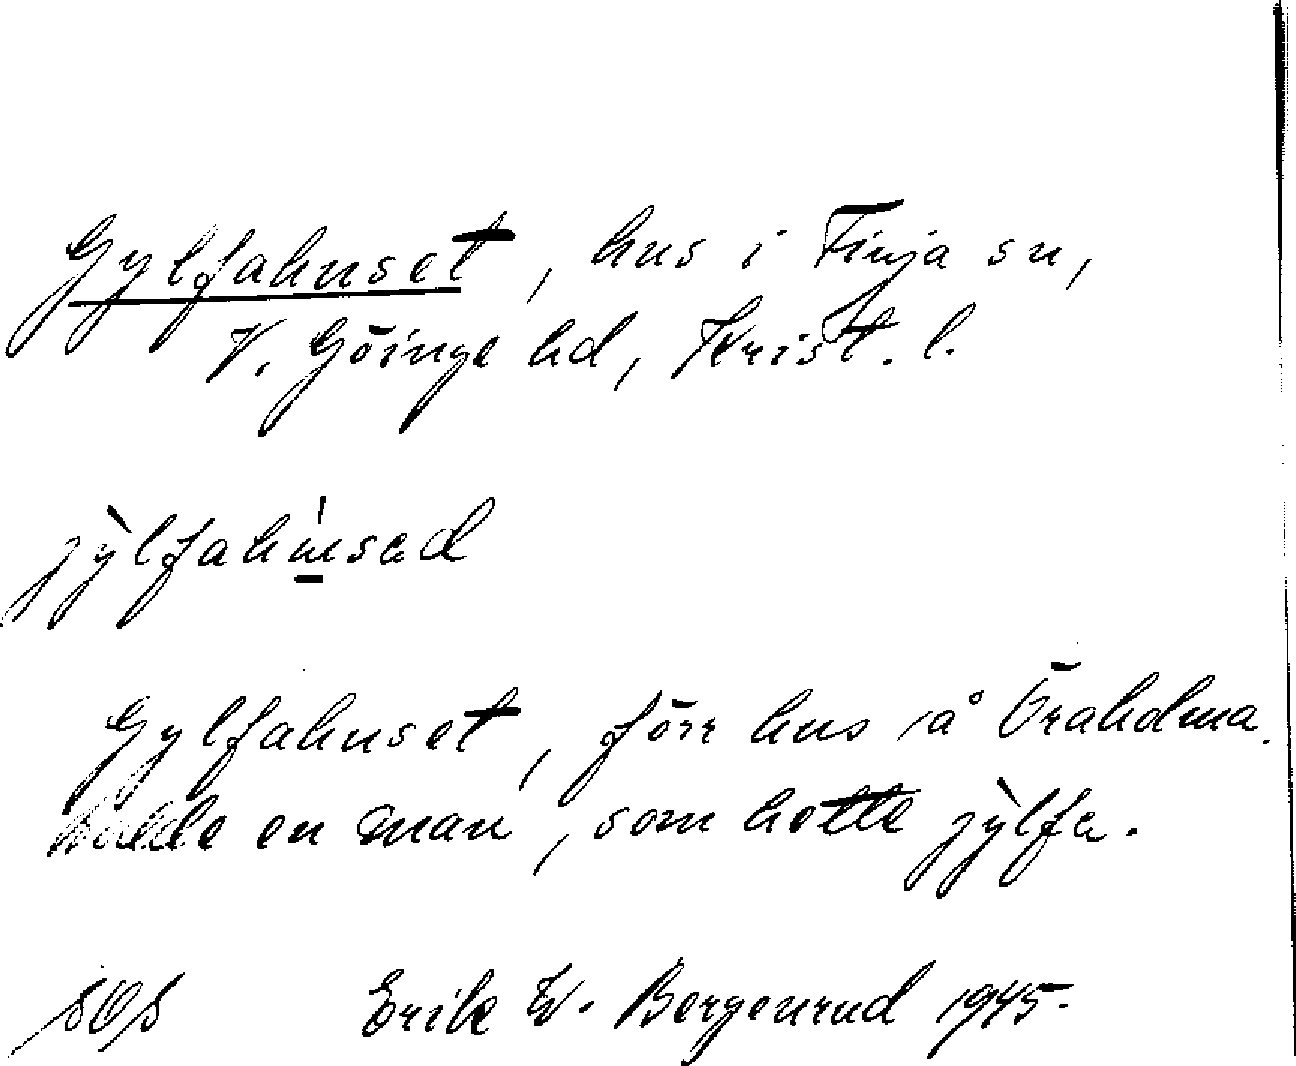 Gylfahuset, hus i Finja sn,
V. Göinge hd, Krist. l.
jỳlfahu̱'sad
Gylfahuset, förr hus å Örahdma.
bodde en man, som hette jỳlfa.
SOS Erik W. Bergenrud 1945.